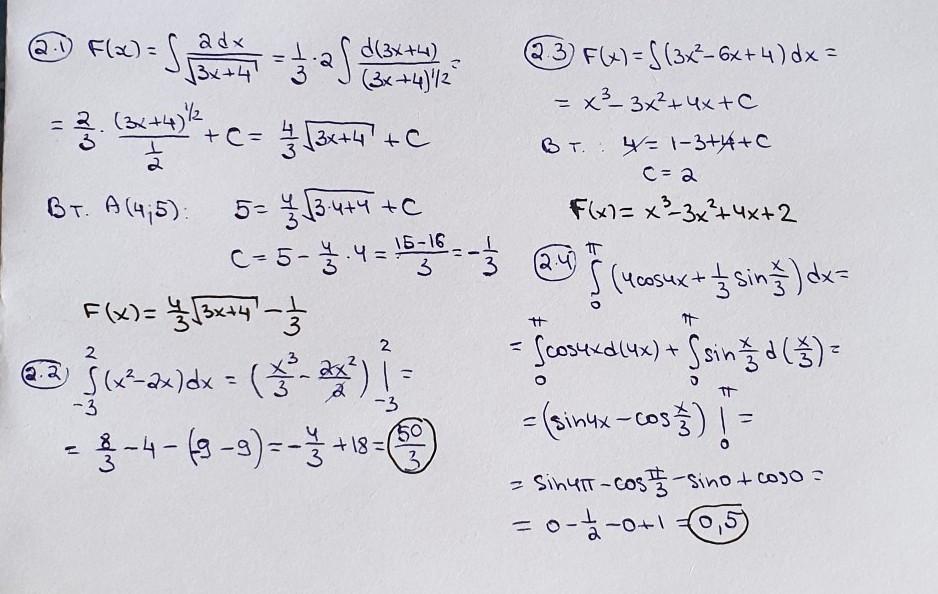 2.1) F(x) = ∫ 2dx/√(3x+4) = 1/3 · 2 ∫ d(3x+4)/(3x+4)^1/2 =
= 2/3 · (3x+4)^1/2 / (1/2) + C = 4/3 √(3x+4) + C
В т. A(4;5): 5 = 4/3 √(3·4+4) + C
C = 5 - 4/3 · 4 = (15-16)/3 = -1/3
F(x) = 4/3 √(3x+4) - 1/3
2.2) ∫_{-3}^{2} (x²-2x)dx = (x³/3 - 2x²/2) |_{-3}^{2} =
= 8/3 - 4 - (-9 - 9) = -4/3 + 18 = 50/3
2.3) F(x) = ∫(3x²-6x+4)dx =
= x³ - 3x² + 4x + C
В т. : 4 = 1-3+4+C
C = 2
F(x) = x³-3x²+4x+2
2.4) ∫_{0}^{π} (4cos4x + 1/3 sin x/3) dx =
= ∫_{0}^{π} cos4xd(4x) + ∫_{0}^{π} sin x/3 d(x/3) =
= (sin4x - cos x/3) |_{0}^{π} =
= sin4π - cos π/3 - sin0 + cos0 =
= 0 - 1/2 - 0 + 1 = 0,5